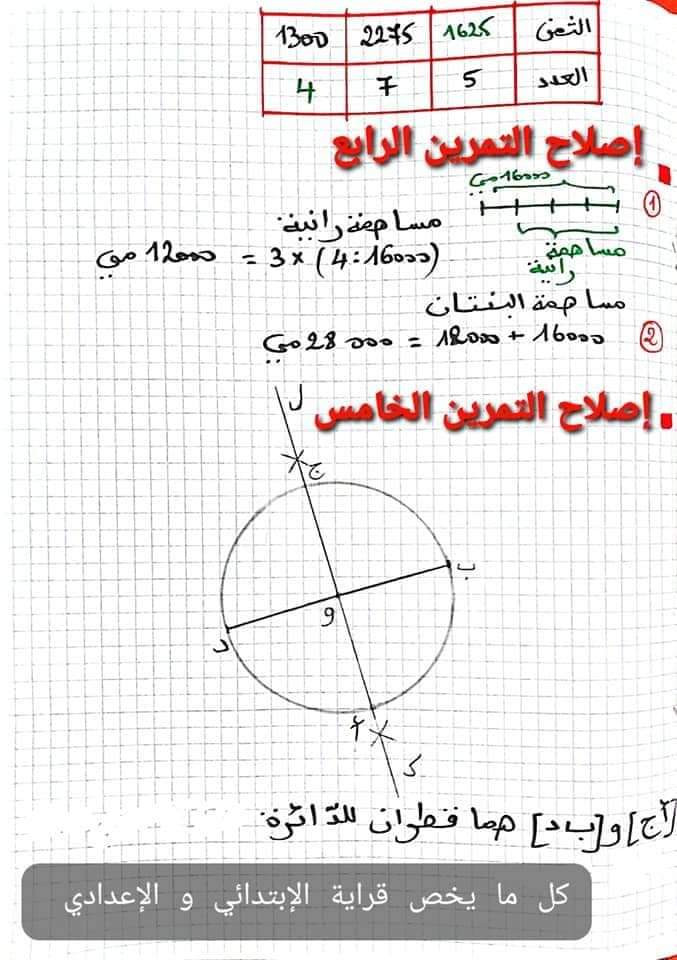 الثمن 1625 2275 1300
العدد 5 7 4
إصلاح التمرين الرابع
① 16000مي
مساهمة
رانية
مساهمة رانية
(16000:4) × 3 = 12000 مي
مساهمة البنتان
② 16000 + 12000 = 28 000 مي
إصلاح التمرين الخامس
ل
ج
ب
و
د
أ
[أج] و[ب د] هما قطران للدّائرة
كل ما يخص قراية الإبتدائي و الإعدادي